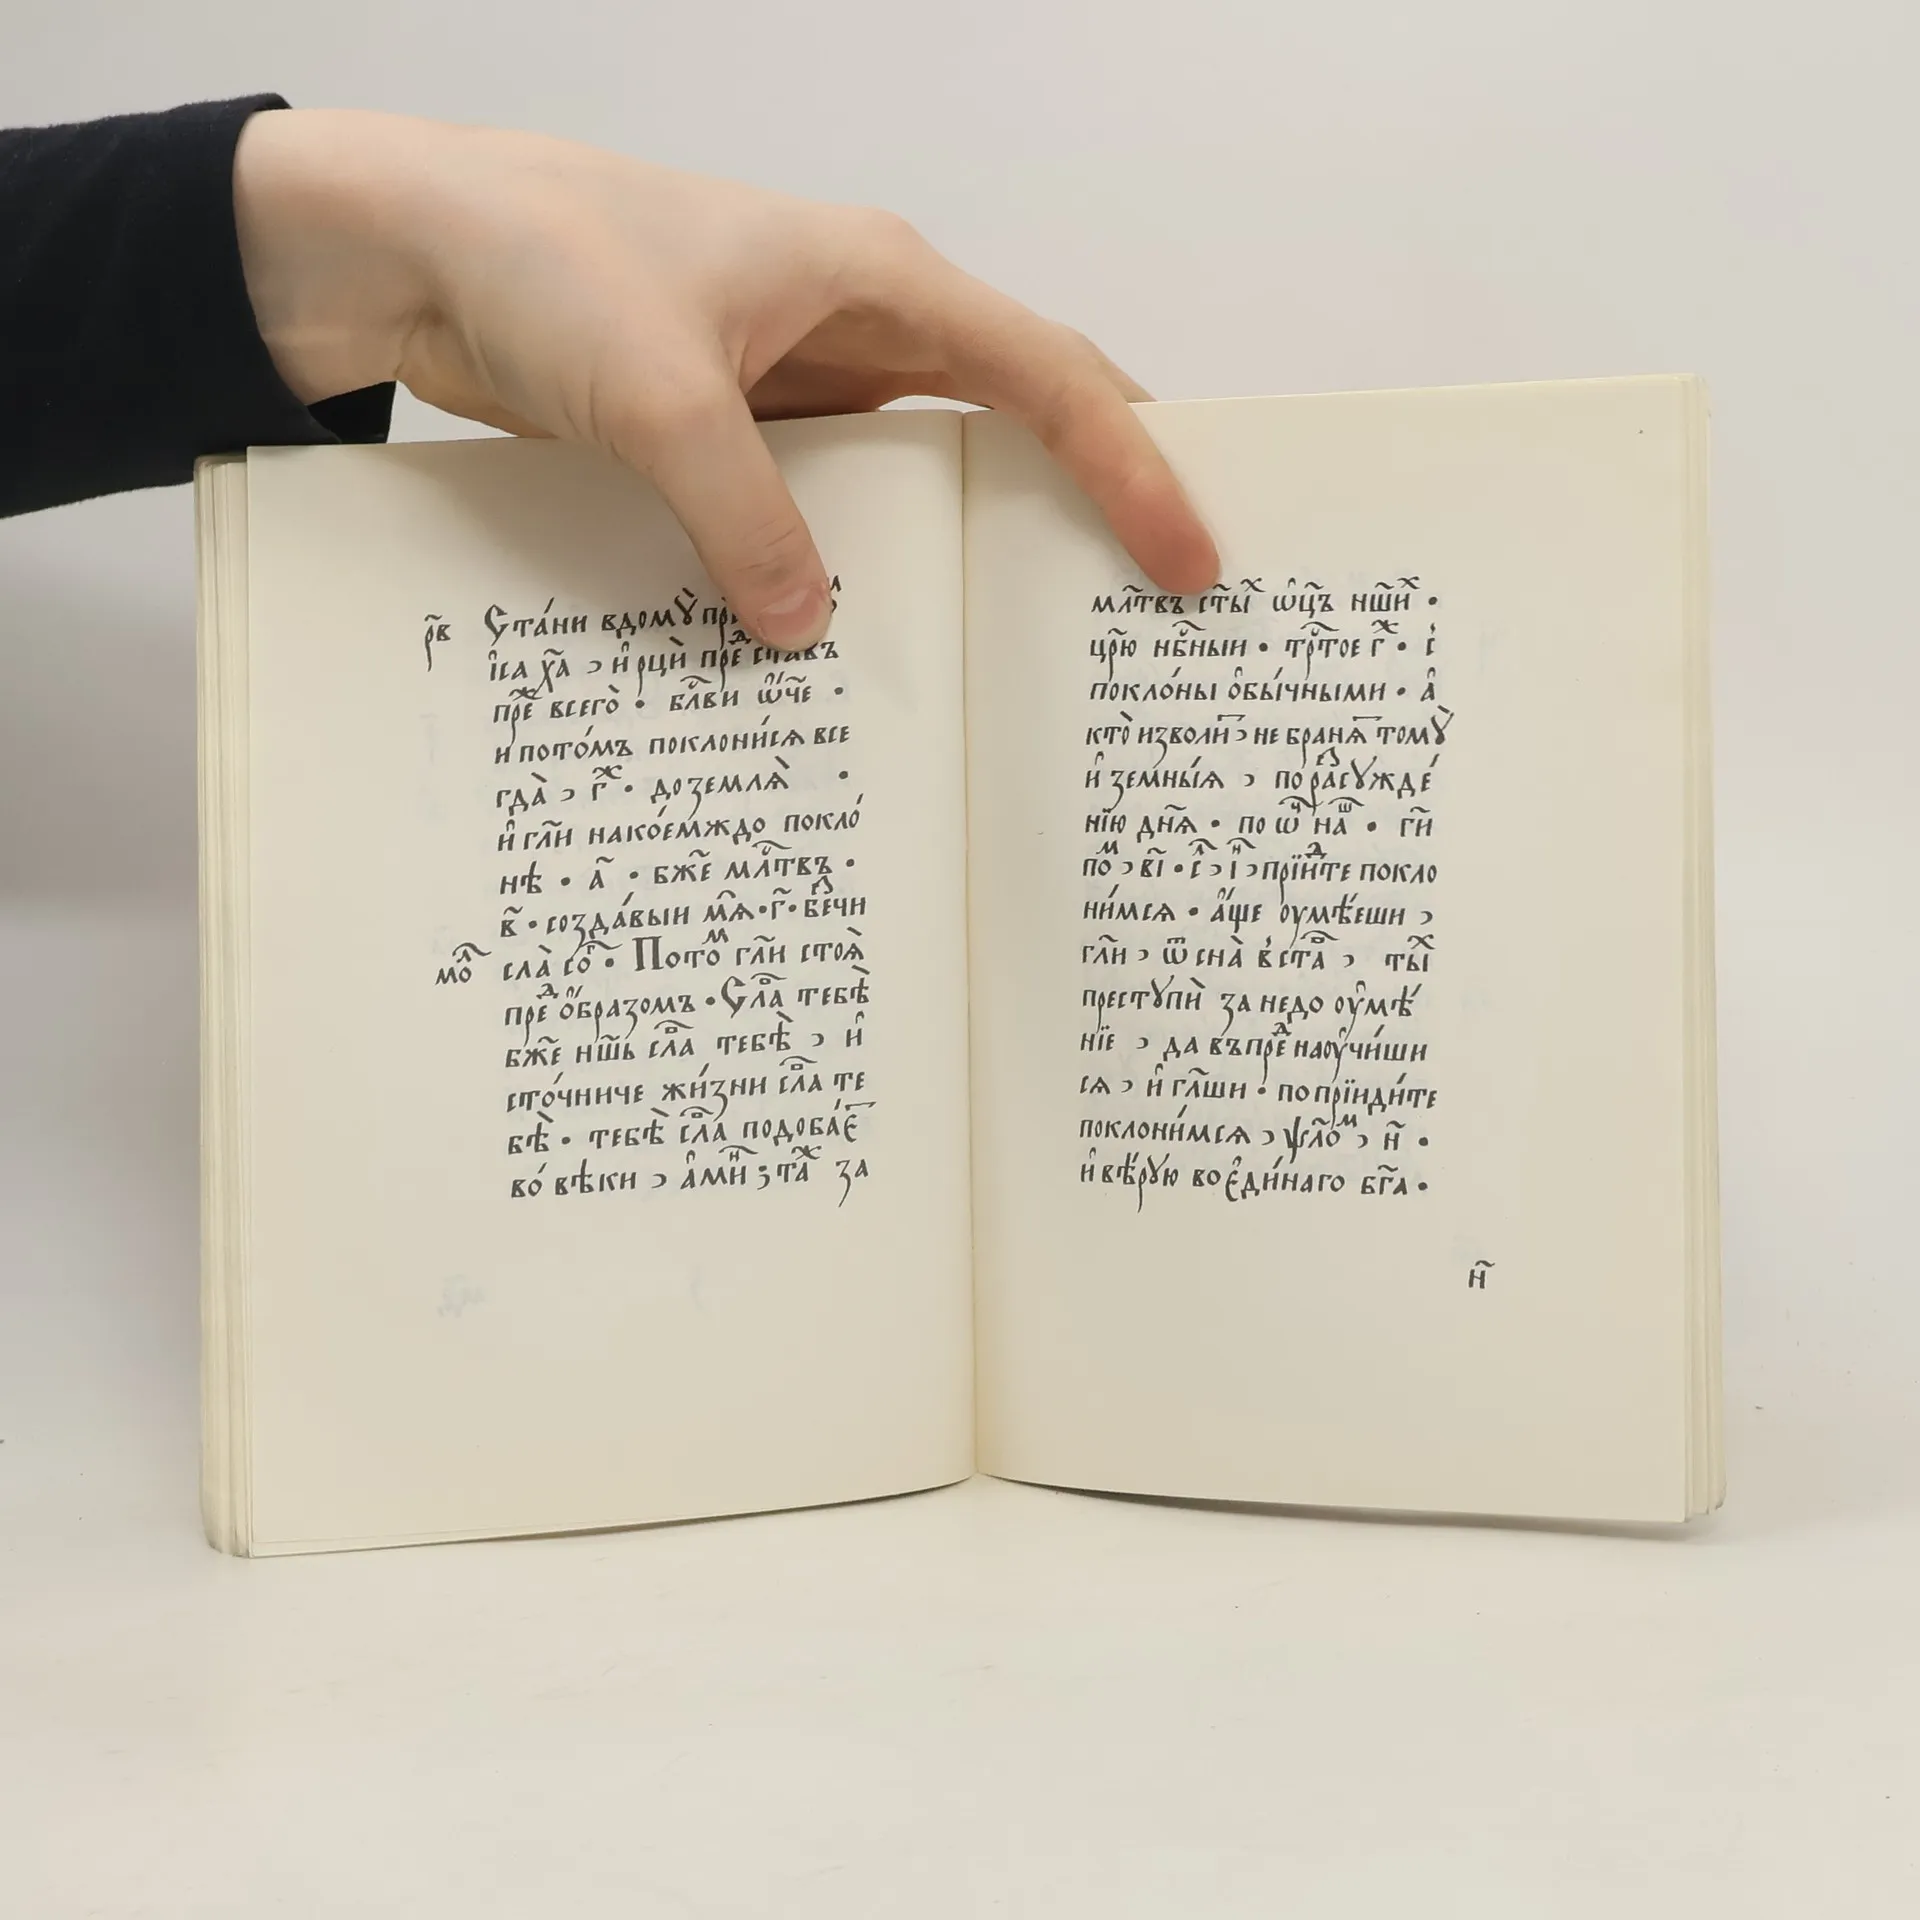 р҃в Ста́ни вдомꙋ̀
і҆са х҃а , и҆ рцѝ пре́ⷣ ставъ
пре́ⷤ всего̀ • бл҃ви ѿ҆че •
и пото́мъ поклони́сѧ все
гда̀ , г҃ⷤ • до землѧ̀ •
и҆ гл҃и нако́емждо покло́
нѣ • а҃ • бж҃е мл҇твъ •
в҃ • созда́выи мѧ҃ • г҃ • беⷥчи
мо́ⷧ сла̀ соⷢ • Потоⷨ гл҃и стоѧ̀
преⷣ ѻ҆́бразомъ • Сл҇ва тебѣ̀
бж҃е нш҃ь сл҇ва тебѣ̀ , и҆
сто́чниче жи́зни сл҇ва те
бѣ̀ • тебѣ̀ сл҇ва подоба́еⷮ
во́ вѣки , а҆миⷩ ; таⷤ за
мл҃твъ ст҃ыⷯ ѡ҆ц҃ъ нш҃иⷯ •
цр҃ю нб҇ныи • тр҇тое г҃ⷤ • с҃
покло́ны ѻ҆бы́чными • а҆
кто̀ изволиⷮ , не бранѧⷮ томꙋ̀
и҆ земны́ѧ , по раⷥсꙋжде́
нїю дн҃ѧ • по ѿⷱ наⷲ • гп҃и
поⷨ , в҃і • сⷧ , іⷩ , прїиⷣте покло
ни́мсѧ • а҆́ще оумѣ́еши ,
гл҃и , ѿ сна̀ вⸯстаⷡ , ты́ⷯ
престꙋпѝ за недо оу҆мѣ́
нїе , да въпреⷣ наоу҆чи́ши
сѧ , и҆ гл҃ши • по прїиди́те
поклони́мсѧ , ѱл҃оⷨ , н҃ •
и҆ вѣ́рꙋю во є҆ди́наго бг҃а •
н҃